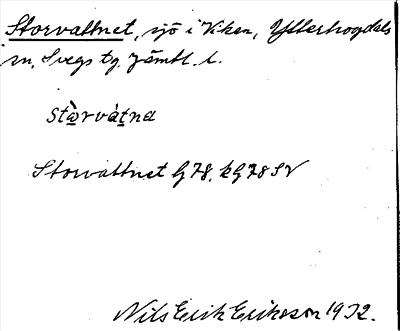 Storvattnet, sjö i Viken, Ytterhogdals
sn, Svegs tg. Jämtl. l.
stɷ̀rvàtnɐ
Storvattnet G78. kG78SV
Nils Erik Eriksson 1932.